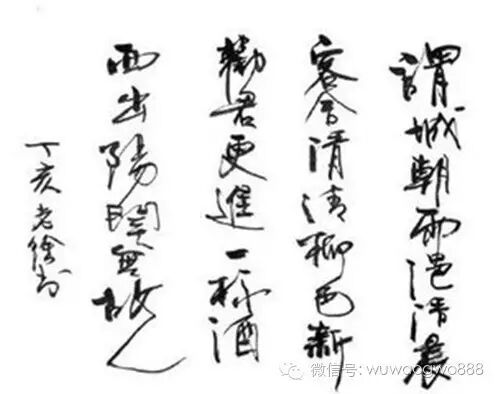 謂城朝雨浥清晨
客舍清清柳色新
勸君更進一杯酒
西出陽關無故人
丁亥老徐书
微信号: wuwoogwo888